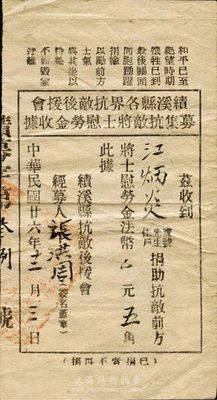 和平已至
絕望時期
犧牲已到
最後關頭
同胞踴躍
捐輸
以勵前方
士氣
與其坐以
待斃
不如毀家
紓難
績溪縣各界抗敵後援會
募集抗敵將士慰勞金收據
茲收到
江炳炎
寶號
先生
住戶
捐助抗敵前方
將士慰勞金法幣
元五角
此據
績溪縣抗敵後援會
經募人張洪周(簽名蓋章)
中華民國廿六年十二月三日
字第
號
(已捐者不再捐)